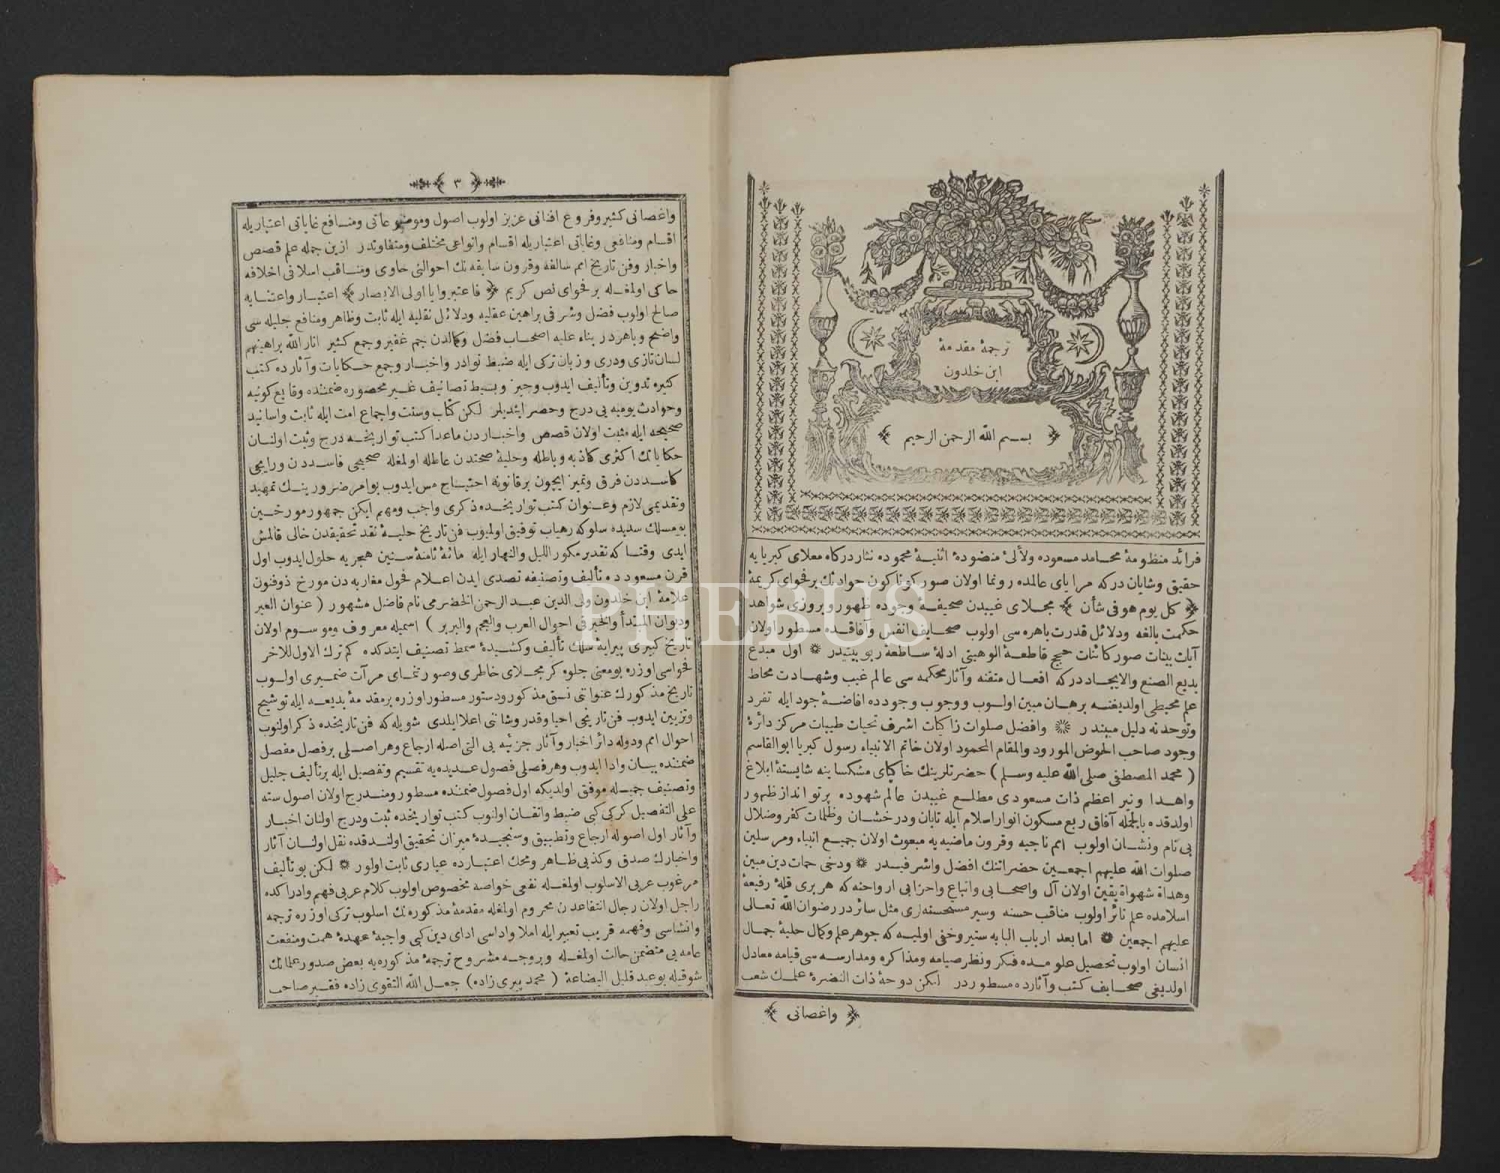 ترجمۀ مقدمۀ
ابن خلدون
﴿ بسم الله الرحمن الرحيم ﴾
فرائد منظومۀ محامد مسعوده ولآلئ منضودۀ اثنیۀ محموده نثار درکاه معلای کبریایه
حقیق وشایان درکه مرایای عالمده رونما اولان صور کوناکون حوادثك بر فحوای کریمۀ
﴿ کل یوم هو فی شأن ﴾ مجلای غیبدن صحیفۀ وجوده ظهور وبروزی شواهد
حکمت بالغه ودلائل قدرت باهره سی اولوب صحایف انفس وآفاقده مسطور اولان
آیات بینات صور کائنات حجج قاطعۀ الوهیتی ادلۀ ساطعۀ ربوبیتیدر * اول مبدع
بدیع الصنع والایجاد درکه افعال متقنه وآثار محکمه سی عالم غیب وشهادت محاط
علم محیطی اولدیغنه برهان مبین اولوب ووجوب وجودده افاضۀ جود ایله تفرد
وتوحدنه دلیل مبیندر * وافضل صلوات زاکیات اشرف تحیات طیبات مرکز دائرۀ
وجود صاحب الحوض المورود والمقام المحمود اولان خاتم الانبیاء رسول کبریا ابوالقاسم
( محمد المصطفی صلی الله علیه وسلم ) حضرتلرینك خاکپای مشکساینه شایستۀ ابلاغ
واهدا ونیر اعظم ذات مسعودی مطلع غیبدن عالم شهوده پرتو انداز ظهور
اولدقده بالجمله آفاق ربع مسکون انوار اسلام ایله تابان ودرخشان وظلمات کفر وضلال
بی نام ونشان اولوب امم ناجیه وقرون ماضیه یه مبعوث اولان جمیع انبیاء ومرسلین
صلوات الله علیهم اجمعین حضراتنك افضل واشرفیدر * ودخی حمات دین مبین
وهداة شهواة یقین اولان آل واصحابی واتباع واحزابی ارواحنه که هر بری قلۀ رفیعۀ
اسلامده علم تأثر اولوب مناقب حسنه وسیر مستحسنه لری مثل سائر در رضوان الله تعالی
علیهم اجمعین * اما بعد ارباب البابه ستیر وخفی اولمیه که جوهر علم وکمال حلیۀ جمال
انسان اولوب تحصیل علومده فکر ونظر صیامه ومذاکره ومدارسه سی قیامه معادل
اولدیغی صحایف کتب وآثارده مسطوردر لیکن دوحۀ ذات النضرۀ علمك شعب
﴿ واغصانی ﴾
﴿ ٣ ﴾
واغصانی کثیر وفروع افنانی عزیز اولوب اصول وموضوعاتی ومنافع غایاتی اعتباریله
اقسام ومنافعی وغایاتی اعتباریله اقسام وانواعی مختلف ومتفاوتدر ازین جمله علم قصص
واخبار وفن تاریخ امم سالفه وقرون سابقه نك احوالنی حاوی ومناقب اسلافی اخلافه
حاکی اولمغله بر فحوای نص کریم ﴿ فاعتبروا یا اولی الابصار ﴾ اعتبار واعتنایه
صالح اولوب فضل وشرفی براهین عقلیه ودلائل نقلیه ایله ثابت وظاهر ومنافع جلیله سی
واضح وباهردر بناء علیه اصحاب فضل وکمالدن جم غفیر وجمع کثیر انار الله براهینهم
لسان تازی ودری وزبان ترکی ایله ضبط نوادر واخبار وجمع حکایات وآثارده کتب
کثیره تدوین وتألیف ایدوب وجیز وبسیط تصانیف غیر محصوره ضمننده وقایع کونیه
وحوادث یومیه یی درج وحصر ایتدیلر لکن کتاب وسنت واجماع امت ایله ثابت واسانید
صحیحه ایله مثبت اولان قصص واخباردن ماعدا کتب تواریخده درج وثبت اولنان
حکایاتك اکثری کاذبه وباطله وحلیۀ صحتدن عاطله اولمغله صحیحی فاسددن ورایجی
کاسددن فرق وتمیز ایچون بر قانونه احتیاج مس ایدوب بو امر ضرورینك تمهید
وتقدیمی لازم وعنوان کتب تواریخده ذکری واجب ومهم ایکن جمهور مورخین
بو مسلك سدیده سلوکه رهیاب توفیق اولمیوب فن تاریخ حلیۀ نقد تحقیقدن خالی قالمش
ایدی وقتا که تقدیر مکور اللیل والنهار ایله مائۀ ثامنۀ سنین هجریه حلول ایدوب اول
قرن مسعودده تألیف وتصنیفه تصدی ایدن اعلام فحول مغاربه دن مورخ ذوفنون
علامۀ ابن خلدون ولی الدین عبد الرحمن الحضرمی نام فاضل مشهور ( عنوان العبر
ودیوان المبتدأ والخبر فی احوال العرب والعجم والبربر ) اسمیله معروف وموسوم اولان
تاریخ کبیری پیرایۀ سلك تألیف وکشیدۀ سمط تصنیف ایتدکده کم ترك الاول للآخر
فحواسی اوزره بو معنی جلوه کر مجلای خاطری وصورتنمای مرآت ضمیری اولوب
تاریخ مذکورك عنواننی نسق مذکور ودستور مسطور اوزره بر مقدمۀ بدیعه ایله توشیح
وتزیین ایدوب فن تاریخی احیا وقدر وشاننی اعلا ایلدی شویله که فن تاریخده ذکر اولنوب
احوال امم ودوله دائر اخبار وآثار جزئیه یی التی اصله ارجاع وهر اصلی بر فصل مفصل
ضمننده بیان وادا ایدوب وهر فصلی فصول عدیده یه تقسیم وتفصیل ایله بر تألیف جلیل
وتصنیف جمیله موفق اولدیکه اول فصول ضمننده مسطور ومندرج اولان اصول سته
علی التفصیل کرکی کبی ضبط واتقان اولنوب کتب تواریخده ثبت ودرج اولنان اخبار
وآثار اول اصوله ارجاع وتطبیق وسنجیدۀ میزان تحقیق اولندقده نقل اولنان آثار
واخبارك صدق وکذبی ظاهر ومحك اعتبارده عیاری ثابت اولور * لکن بو تألیف
مرغوب عربی الاسلوب اولمغله نفعی خواصه مخصوص اولوب کلام عربی فهم وادراکده
راجل اولان رجال انتفاعدن محروم اولمغله مقدمۀ مذکوره نك اسلوب ترکی اوزره ترجمه
وانشاسی وفهمه قریب تعبیر ایله املا واداسی ادای دین کبی واجبۀ عهدۀ همت ومنفعت
عامه یی متضمن حالت اولمغله وبر وجه مشروح ترجمۀ مذکوره یه بعض صدور علمانك
شوقیله بو عبد قلیل البضاعة ( محمد پیری زاده ) جعل الله التقوی زاده فقیر صاحب
PHEBUS